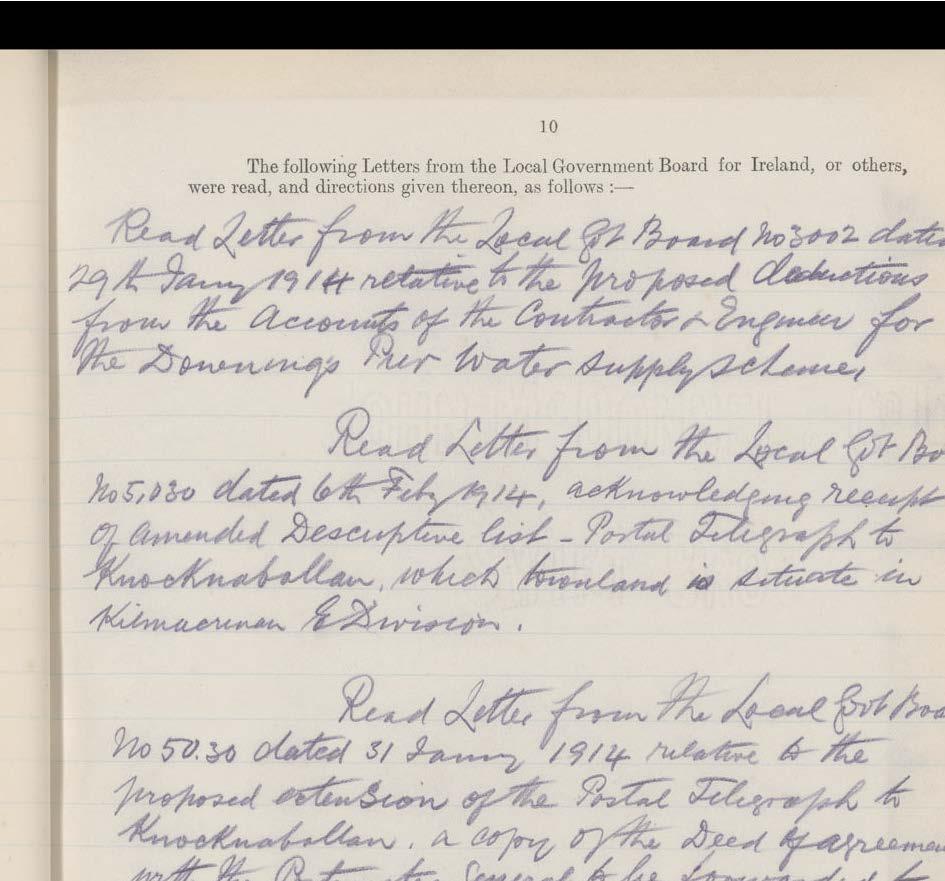 10
The following Letters from the Local Government Board for Ireland, or others,
were read, and directions given thereon, as follows :—
Read Letter from the Local Govt Board No 3002 date
29th Jany 1914 relative to the proposed deductions
from the Accounts of the Contractor & Engineer for
the Downings Pier Water supply scheme,
Read Letter from the Local Govt Bo
No 5,030 dated 6th Feby 1914, acknowledging receipt
of amended Descriptive list - Postal Telegraph to
Knocknabollan, which townland is situate in
Kilmacrenan E Division.
Read Letter from the Local Govt Boa
No 50.30 dated 31 Jany 1914 relative to the
proposed extension of the Postal Telegraph to
Knocknabollan. a copy of the Deed of agreemen
with the General to be forwarded to